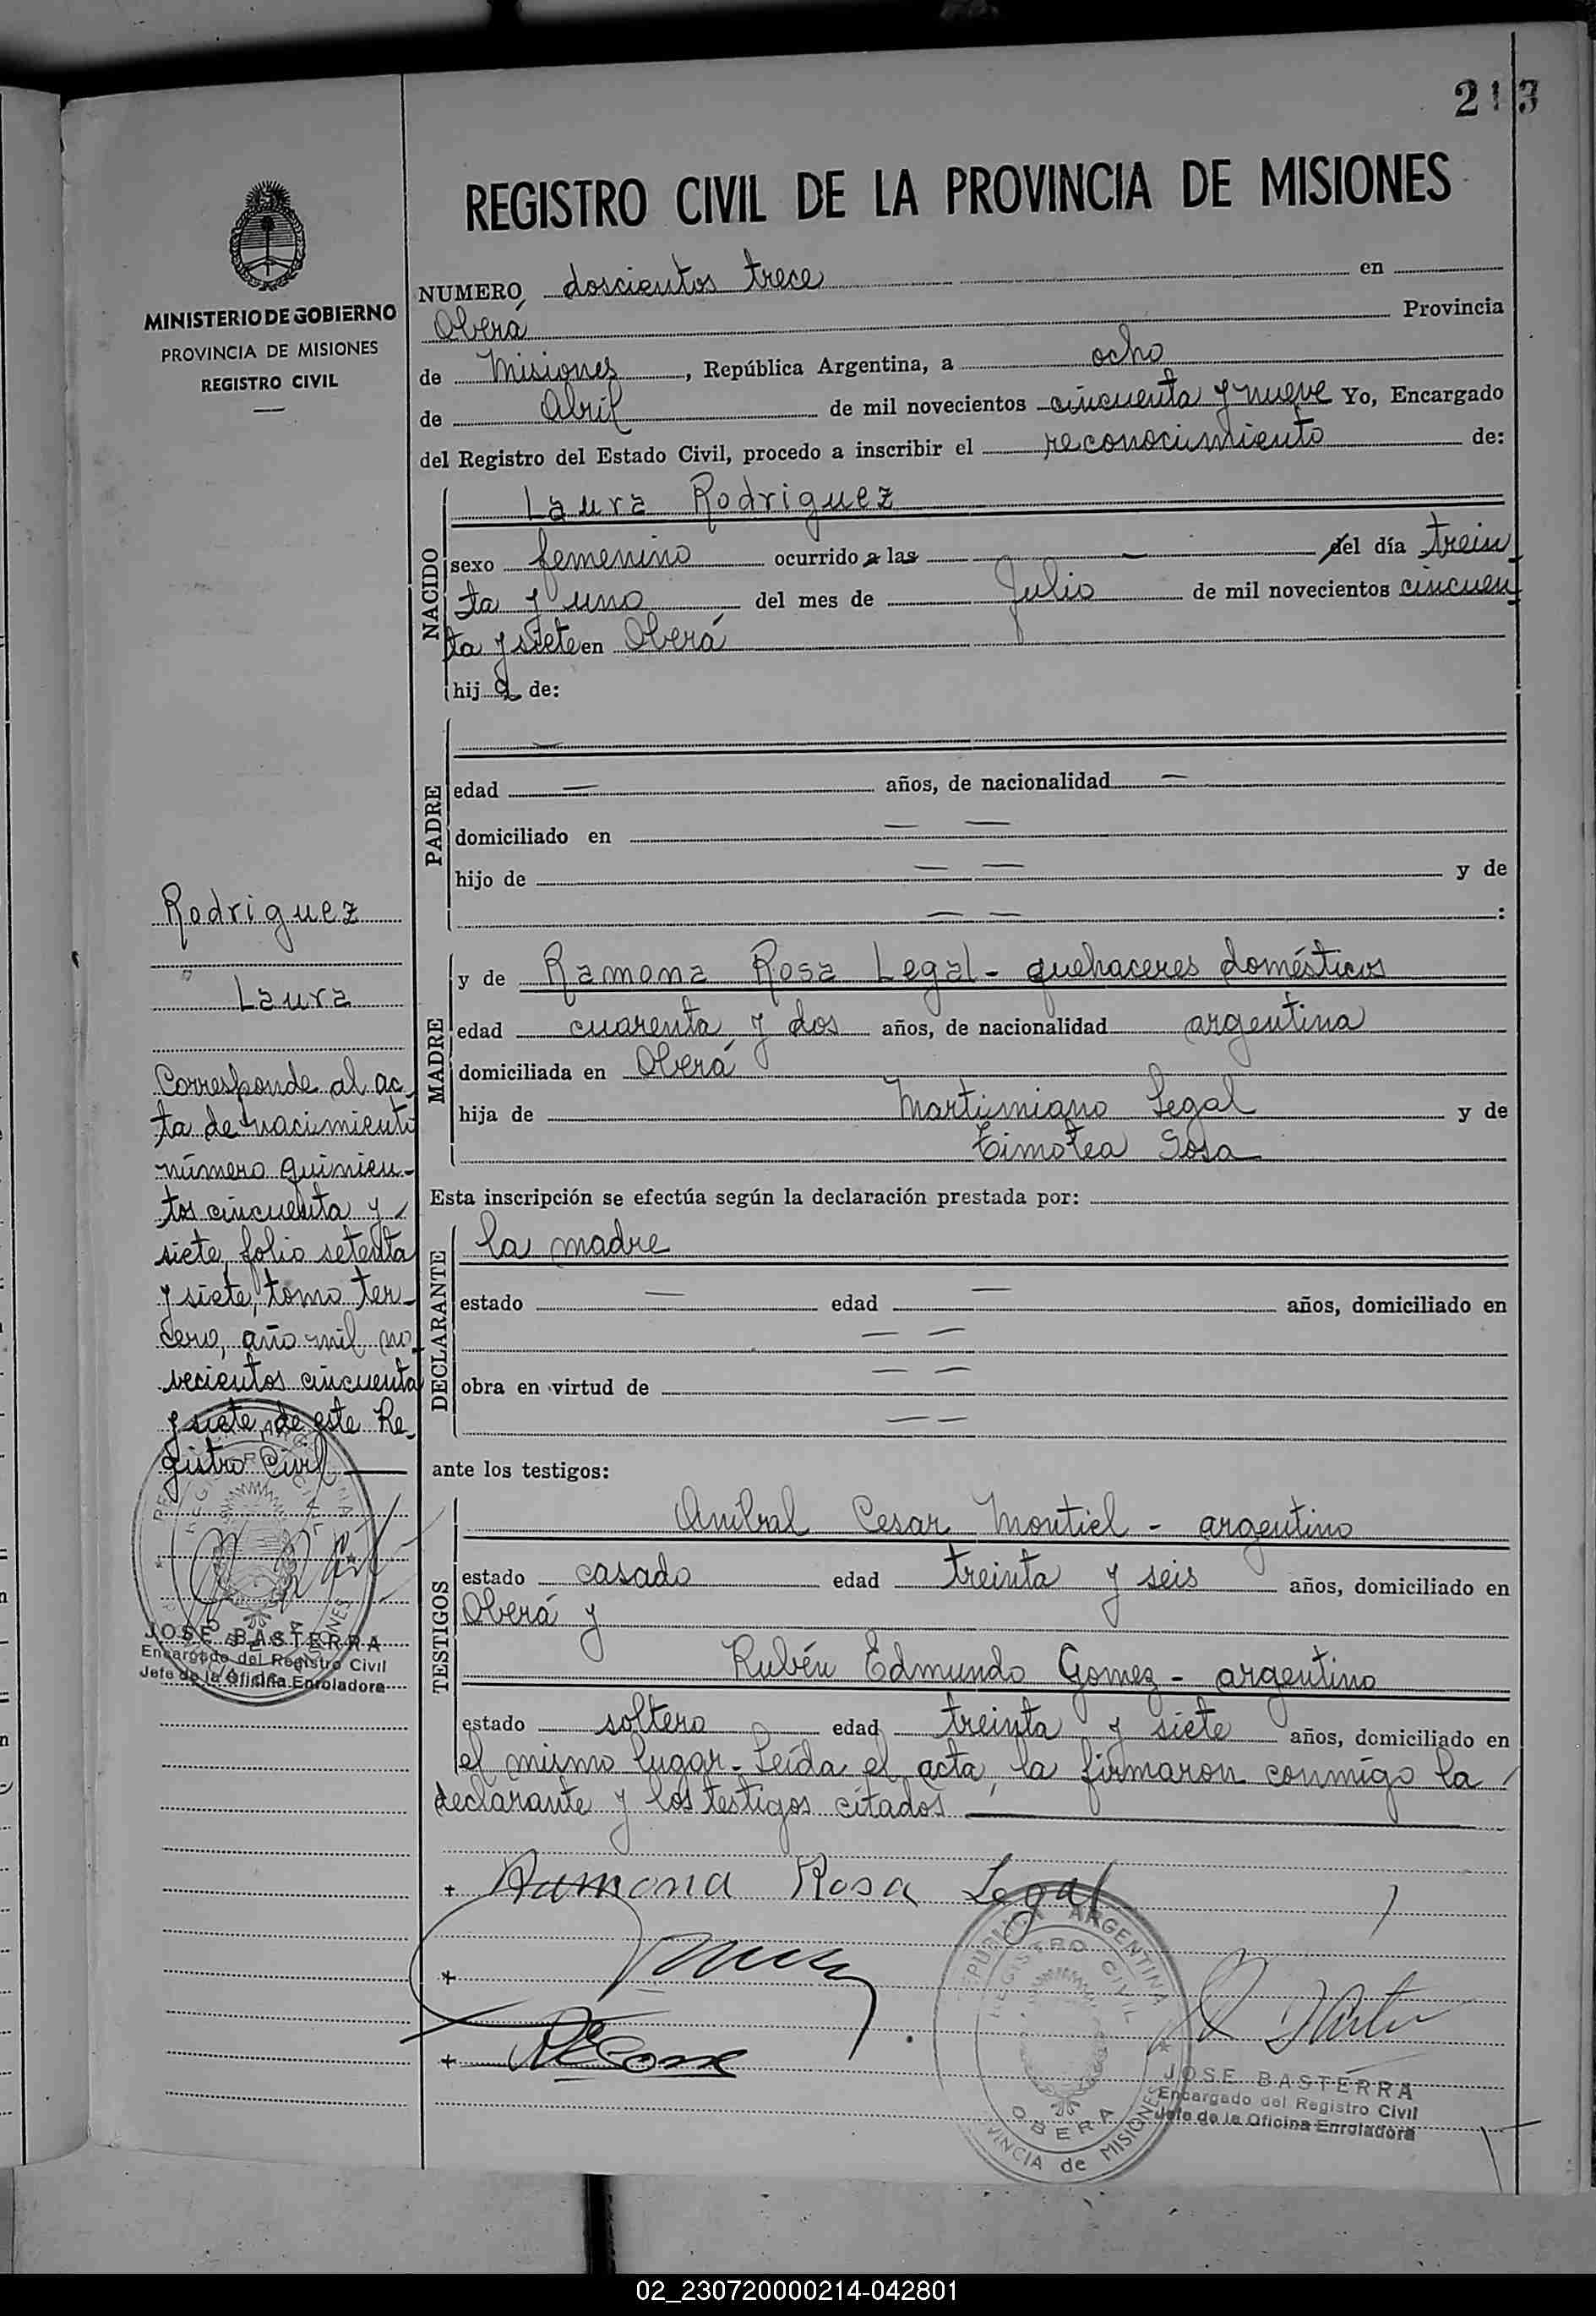 213
REGISTRO CIVIL DE LA PROVINCIA DE MISIONES
MINISTERIO DE GOBIERNO
PROVINCIA DE MISIONES
REGISTRO CIVIL
NUMERO doscientos trece en
Oberá Provincia
de Misiones, República Argentina, a ocho
de Abril de mil novecientos cincuenta y nueve Yo, Encargado
del Registro del Estado Civil, procedo a inscribir el reconocimiento de:
NACIDO
Laura Rodriguez
sexo femenino ocurrido a las — del día trein
ta y uno del mes de Julio de mil novecientos cincuen
ta y siete en Oberá
hija de:
PADRE
—
edad — años, de nacionalidad —
domiciliado en — —
hijo de — — y de
— — :
MADRE
y de Ramona Rosa Legal - quehaceres domésticos
edad cuarenta y dos años, de nacionalidad argentina
domiciliada en Oberá
hija de Martimiano Legal y de
Timotea Sosa
Esta inscripción se efectúa según la declaración prestada por:
DECLARANTE
la madre
estado — edad — años, domiciliado en
— —
obra en virtud de — —
— —
ante los testigos:
TESTIGOS
Anibal Cesar Montiel - argentino
estado casado edad treinta y seis años, domiciliado en
Oberá y
Rubén Edmundo Gomez - argentino
estado soltero edad treinta y siete años, domiciliado en
el mismo lugar - Leída el acta, la firmaron conmigo la
declarante y los testigos citados
Rodriguez
Laura
Corresponde al ac
ta de nacimiento
número quinien-
tos cincuenta y
siete, folio setenta
y siete, tomo ter-
cero, año mil no-
vecientos cincuenta
y siete, de este Re-
gistro Civil
JOSE BASTERRA
Encargado del Registro Civil
Jefe de la Oficina Enroladora
+ Ramona Rosa Legal
+
+
REPUBLICA ARGENTINA
REGISTRO CIVIL
OBERA
PROVINCIA de MISIONES
JOSE BASTERRA
Encargado del Registro Civil
Jefe de la Oficina Enroladora
02_230720000214-042801